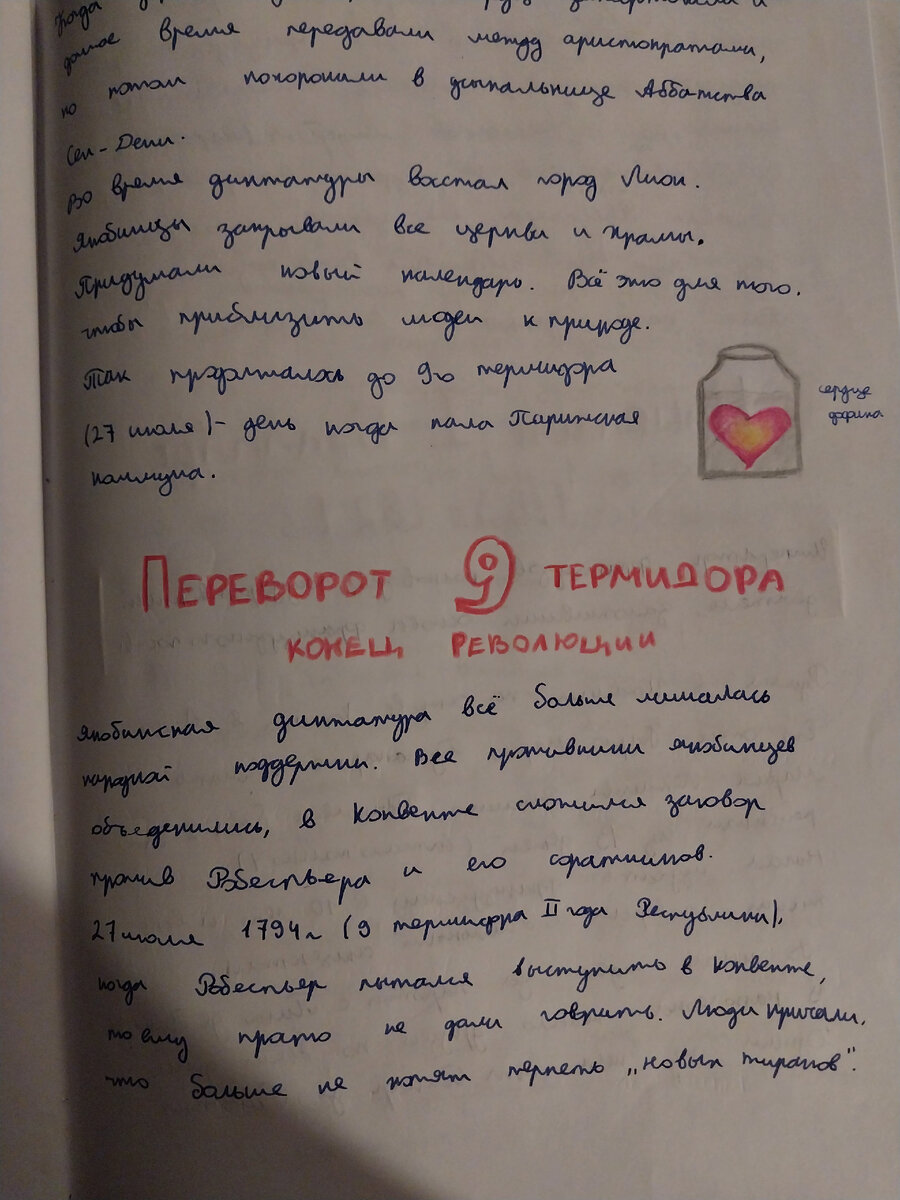 Когда
долгое время передавали между аристократами,
но потом похоронили в усыпальнице Аббатства
Сен-Дени.
Во время диктатуры восстал город Лион.
Якобинцы закрывали все церкви и храмы.
Придумали новый календарь. Всё это для того,
чтобы приблизить людей к природе.
Так продолжалось до 9го термидора
(27 июля) - день когда пала Парижская
коммуна.
сердце
дофина
ПЕРЕВОРОТ 9 ТЕРМИДОРА
КОНЕЦ РЕВОЛЮЦИИ
Якобинская диктатура всё больше лишалась
народной поддержки. Все противники якобинцев
объеденились, в Конвенте сложился заговор
против Робеспьера и его соратников.
27 июля 1794г (9 термидора II года Республики),
когда Робеспьер пытался выступить в конвенте,
то ему просто не дали говорить. Люди кричали,
что больше не хотят терпеть „новых тиранов".